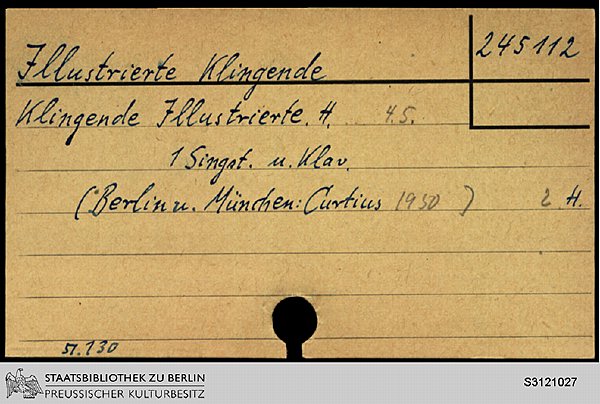 245112
Illustrierte Klingende
Klingende Illustrierte. H. 4.5.
1 Singst. u. Klav.
(Berlin u. München: Curtius 1950 ) 2 H.
n.130
STAATSBIBLIOTHEK ZU BERLIN
PREUSSISCHER KULTURBESITZ
S3121027